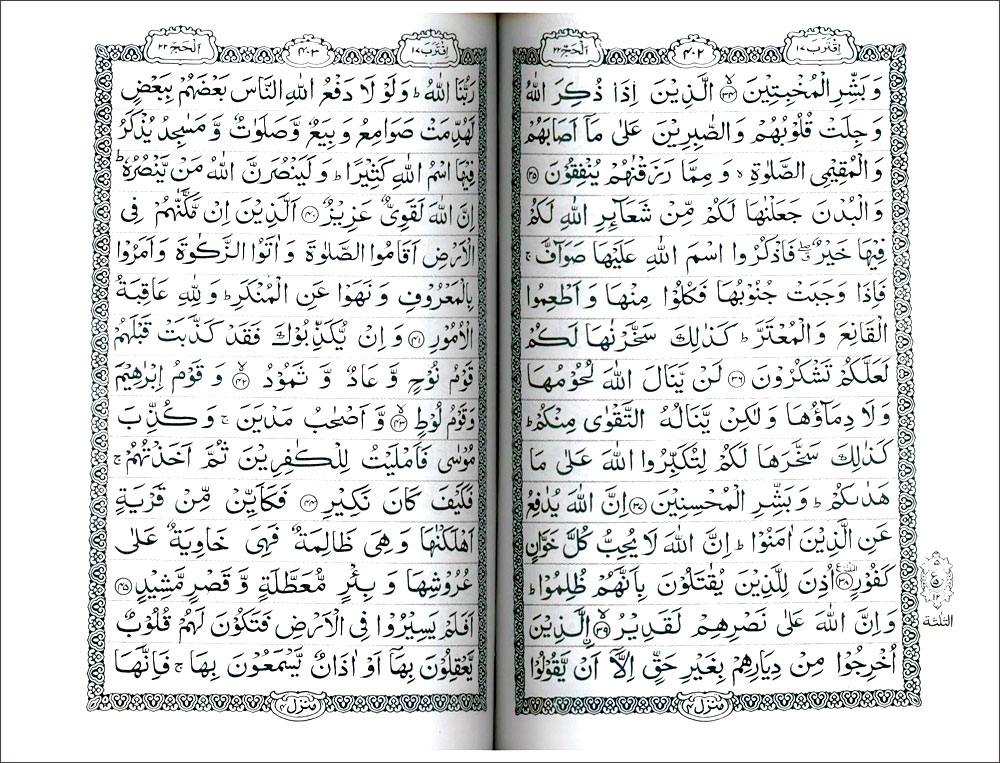 اِقْتَرَبَ ١٧
٤٠٢
اَلْحَجّ ٢٢
وَ بَشِّرِ الْمُخْبِتِيْنَ ﴿٣٤﴾ الَّذِيْنَ اِذَا ذُكِرَ اللّٰهُ
وَجِلَتْ قُلُوْبُهُمْ وَالصّٰبِرِيْنَ عَلٰى مَاۤ اَصَابَهُمْ
وَالْمُقِيْمِى الصَّلٰوةِ ۙ وَ مِمَّا رَزَقْنٰهُمْ يُنْفِقُوْنَ ﴿٣٥﴾
وَالْبُدْنَ جَعَلْنٰهَا لَكُمْ مِّنْ شَعَآئِرِ اللّٰهِ لَكُمْ
فِيْهَا خَيْرٌ ۖ فَاذْكُرُوا اسْمَ اللّٰهِ عَلَيْهَا صَوَآفَّ ۚ
فَاِذَا وَجَبَتْ جُنُوْبُهَا فَكُلُوْا مِنْهَا وَ اَطْعِمُوا
الْقَانِعَ وَالْمُعْتَرَّ ؕ كَذٰلِكَ سَخَّرْنٰهَا لَكُمْ
لَعَلَّكُمْ تَشْكُرُوْنَ ﴿٣٦﴾ لَنْ يَّنَالَ اللّٰهَ لُحُوْمُهَا
وَلَا دِمَآؤُهَا وَلٰكِنْ يَّنَالُهُ التَّقْوٰى مِنْكُمْ ؕ
كَذٰلِكَ سَخَّرَهَا لَكُمْ لِتُكَبِّرُوا اللّٰهَ عَلٰى مَا
هَدٰىكُمْ ؕ وَ بَشِّرِ الْمُحْسِنِيْنَ ﴿٣٧﴾ اِنَّ اللّٰهَ يُدٰفِعُ
عَنِ الَّذِيْنَ اٰمَنُوْا ؕ اِنَّ اللّٰهَ لَا يُحِبُّ كُلَّ خَوَّانٍ
كَفُوْرٍ ﴿٣٨﴾ اُذِنَ لِلَّذِيْنَ يُقٰتَلُوْنَ بِاَنَّهُمْ ظُلِمُوْا ؕ
وَ اِنَّ اللّٰهَ عَلٰى نَصْرِهِمْ لَقَدِيْرُ ﴿٣٩﴾ الَّذِيْنَ
اُخْرِجُوْا مِنْ دِيَارِهِمْ بِغَيْرِ حَقٍّ اِلَّاۤ اَنْ يَّقُوْلُوْا
مَنْزِل ٤
الثلثة
اِقْتَرَبَ ١٧
٤٠٣
اَلْحَجّ ٢٢
رَبُّنَا اللّٰهُ ؕ وَلَوْ لَا دَفْعُ اللّٰهِ النَّاسَ بَعْضَهُمْ بِبَعْضٍ
لَّهُدِّمَتْ صَوَامِعُ وَ بِيَعٌ وَّ صَلَوٰتٌ وَّ مَسٰجِدُ يُذْكَرُ
فِيْهَا اسْمُ اللّٰهِ كَثِيْرًا ؕ وَ لَيَنْصُرَنَّ اللّٰهُ مَنْ يَّنْصُرُهٗ ؕ
اِنَّ اللّٰهَ لَقَوِىٌّ عَزِيْزٌ ﴿٤٠﴾ اَلَّذِيْنَ اِنْ مَّكَّنّٰهُمْ فِى
الْاَرْضِ اَقَامُوا الصَّلٰوةَ وَ اٰتَوُا الزَّكٰوةَ وَ اَمَرُوْا
بِالْمَعْرُوْفِ وَ نَهَوْا عَنِ الْمُنْكَرِ ؕ وَ لِلّٰهِ عَاقِبَةُ
الْاُمُوْرِ ﴿٤١﴾ وَ اِنْ يُّكَذِّبُوْكَ فَقَدْ كَذَّبَتْ قَبْلَهُمْ
قَوْمُ نُوْحٍ وَّ عَادٌ وَّ ثَمُوْدُ ﴿٤٢﴾ وَ قَوْمُ اِبْرٰهِيْمَ
وَ قَوْمُ لُوْطٍ ﴿٤٣﴾ وَّ اَصْحٰبُ مَدْيَنَ ۚ وَ كُذِّبَ
مُوْسٰى فَاَمْلَيْتُ لِلْكٰفِرِيْنَ ثُمَّ اَخَذْتُهُمْ ۚ
فَكَيْفَ كَانَ نَكِيْرِ ﴿٤٤﴾ فَكَاَيِّنْ مِّنْ قَرْيَةٍ
اَهْلَكْنٰهَا وَ هِىَ ظَالِمَةٌ فَهِىَ خَاوِيَةٌ عَلٰى
عُرُوْشِهَا وَ بِئْرٍ مُّعَطَّلَةٍ وَّ قَصْرٍ مَّشِيْدٍ ﴿٤٥﴾
اَفَلَمْ يَسِيْرُوْا فِى الْاَرْضِ فَتَكُوْنَ لَهُمْ قُلُوْبٌ
يَّعْقِلُوْنَ بِهَاۤ اَوْ اٰذَانٌ يَّسْمَعُوْنَ بِهَا ۚ فَاِنَّهَا
مَنْزِل ٤